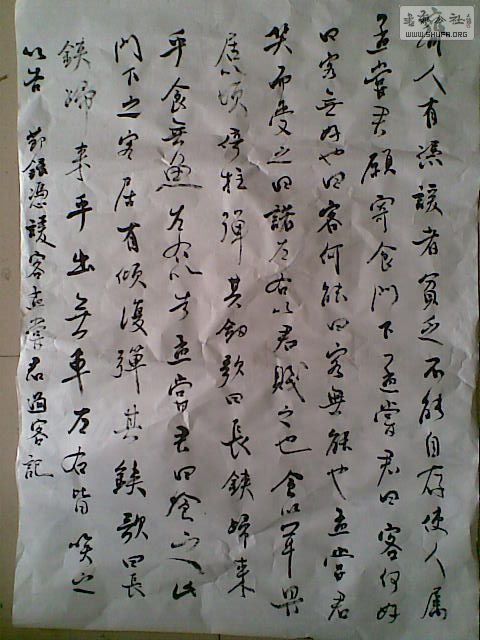 齐人有冯谖者贫乏不能自存使人属
孟尝君愿寄食门下孟尝君曰客何好
曰客无好也曰客何能曰客无能也孟尝君
笑而受之曰诺左右以君贱之也食以草具
居顷倚柱弹其剑歌曰长铗归来
乎食无鱼左右以告孟尝君曰食之比
门下之客居有倾复弹其铗歌曰长
铗归来乎出无车左右皆笑之
以告 节录冯谖客孟尝君过客记
书法公社
WWW.SHUFA.ORG